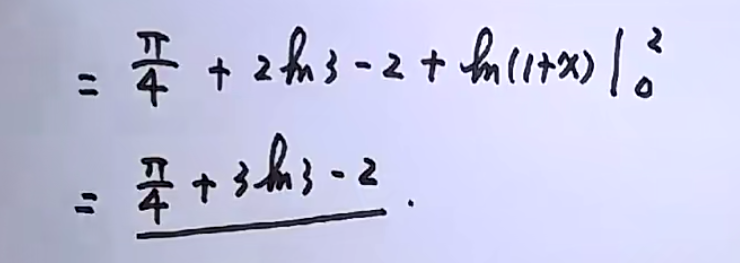 = π/4 + 2ln3 - 2 + ln(1+x)|₀²
= π/4 + 3ln3 - 2.